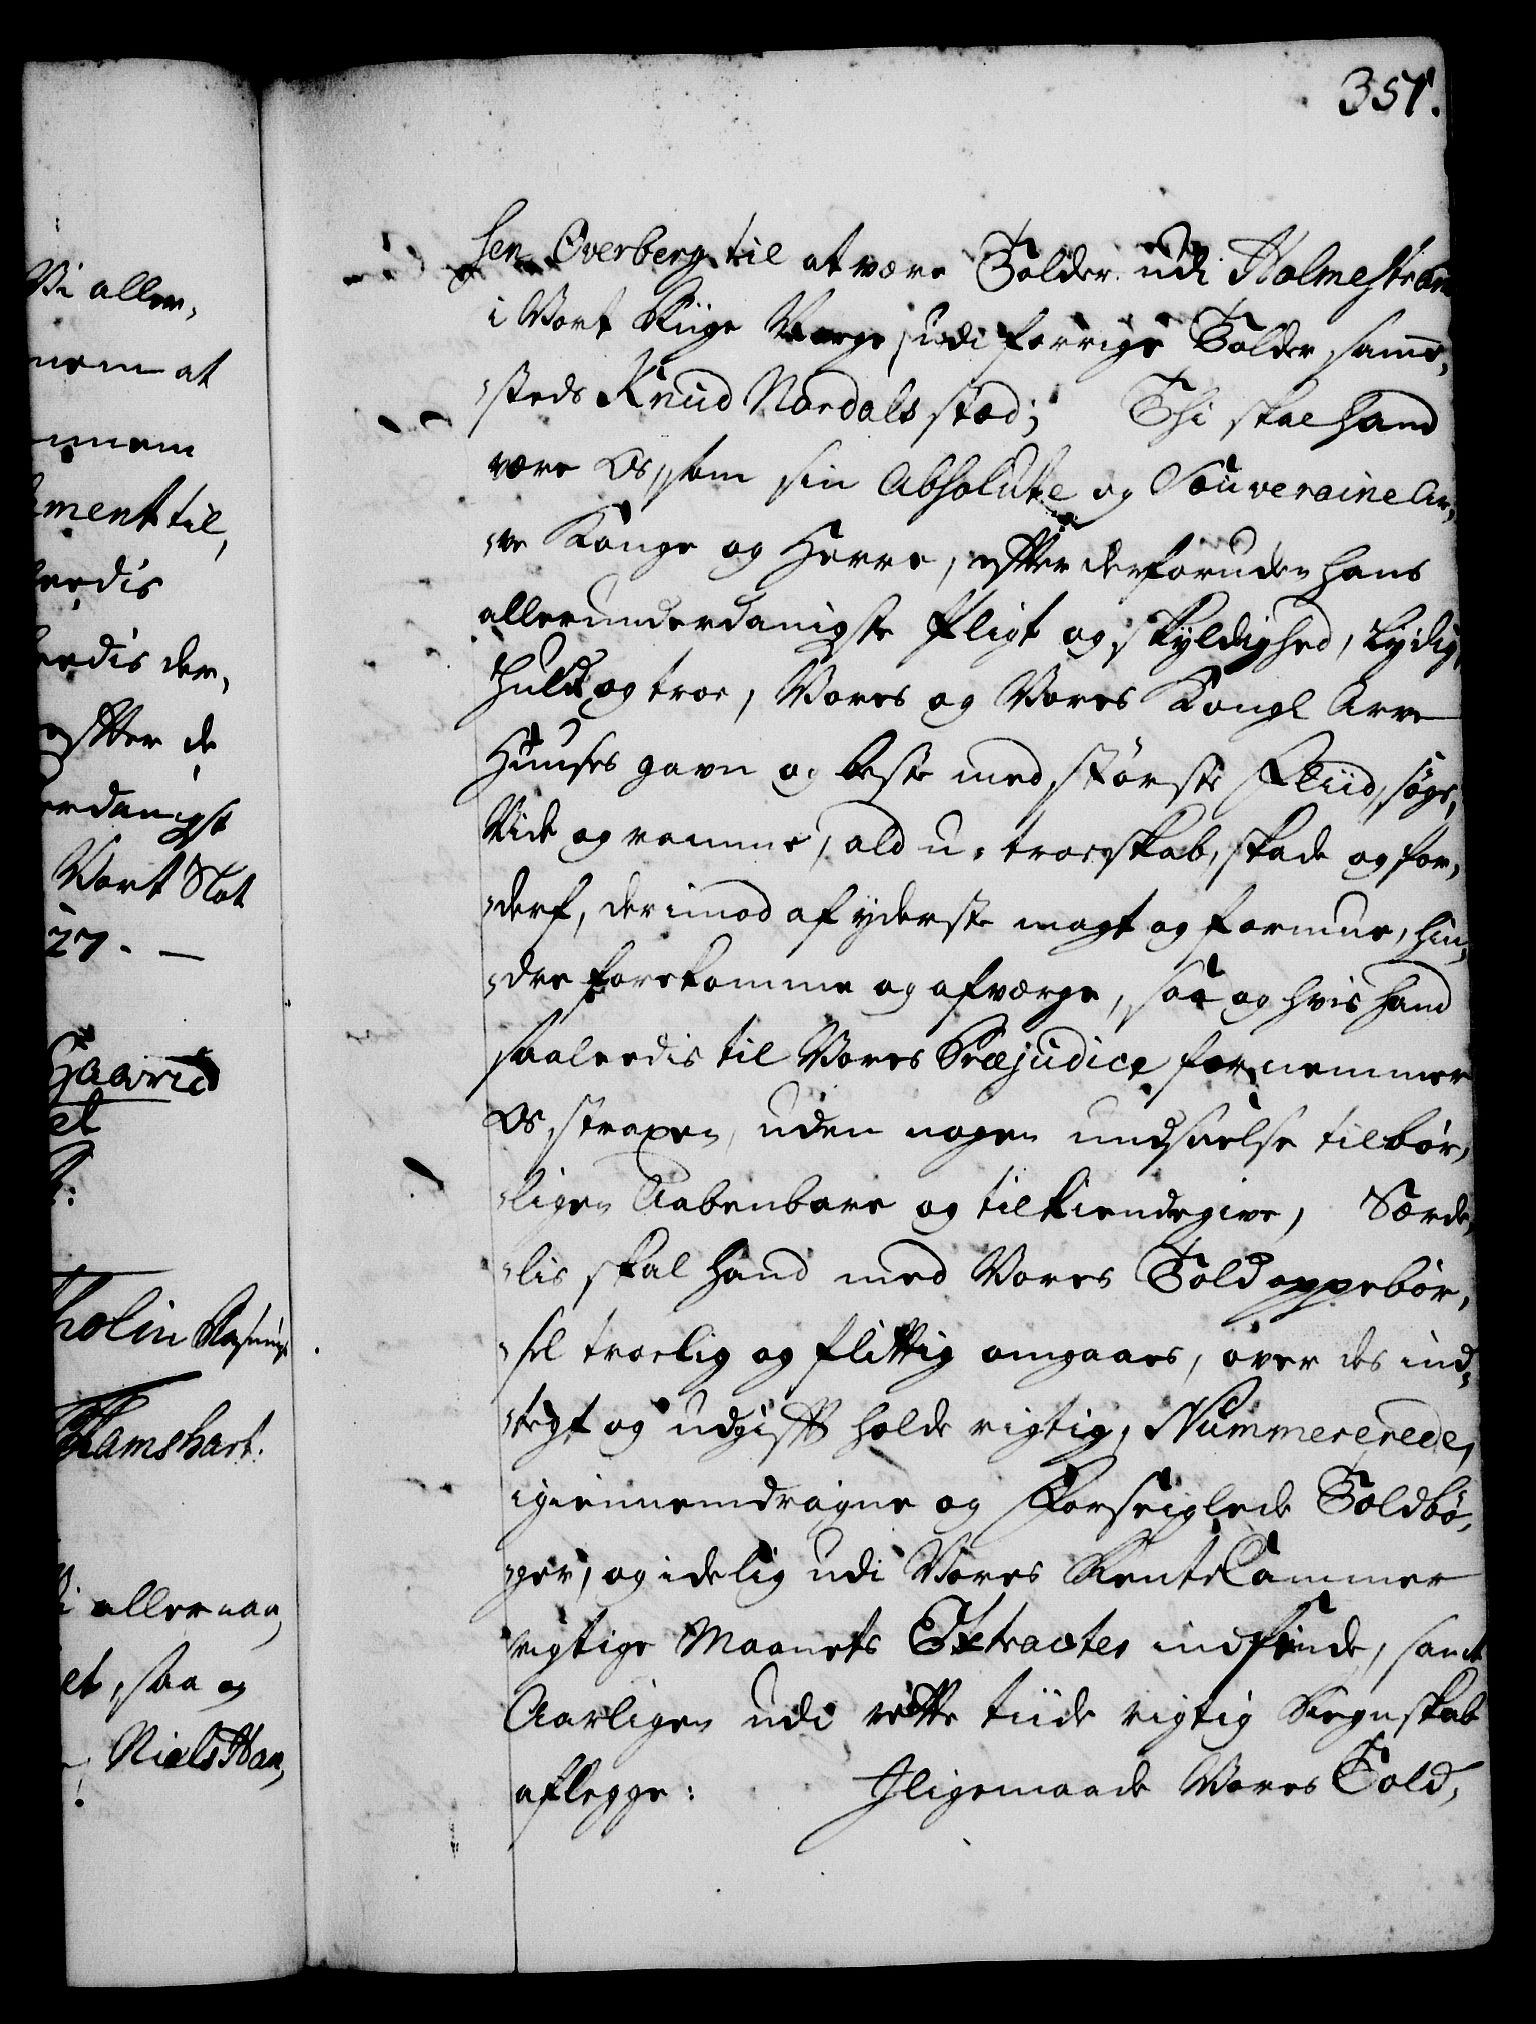 351.
Vi aller,
nem at
ment til,
leedis
leedis der,
effter de
erdanigst
Vort Slot
27. —
Gaarid
et
holin Rasmus
Thamshart:
i allernaa,
et, saa og
Niels Han,
sen Overberg til at være Tolder udi Holmestrand
i Vort Riige Norge, udi forrige Tolder samme,
„steds Knud Nordals stæd; Thi skal hand
være Os, som sin Absolute og Souveraine Ar,
„ve Konge og Herre, effter derforuden hans
allerunderdanigste Pligt og skyldighed, Lydig,
Huld og troe, Vores og Vores Kongl Arve
Huuses gavn og beste med største Fliid, søge,
Vide og ramme, ald u-troeskab, skade og for,
„derf, derimod af yderste magt og formue, hin,
„dre forekomme og afværge, saa og hvis hand
saaleedis til Vores Præjudice fornemmer
Os, straxen, uden nogen undseelse tilbør,
„ligen Aabenbare og tilkiendegive, Særde,
„lis skal hand med Vores Told oppebør,
„sel troelig og flittig omgaaes, over des ind,
„tegt og udgifft holde rigtig, Nummererede,
igiennemdragne og Forseiglede Toldbø,
„ger, og idelig udi Vores RenteCammer
rigtige Maanets Extracter indsende, samt
Aarligen udi rette tiide rigtig Regnskab
aflegge: Jligemaade Vores Told,